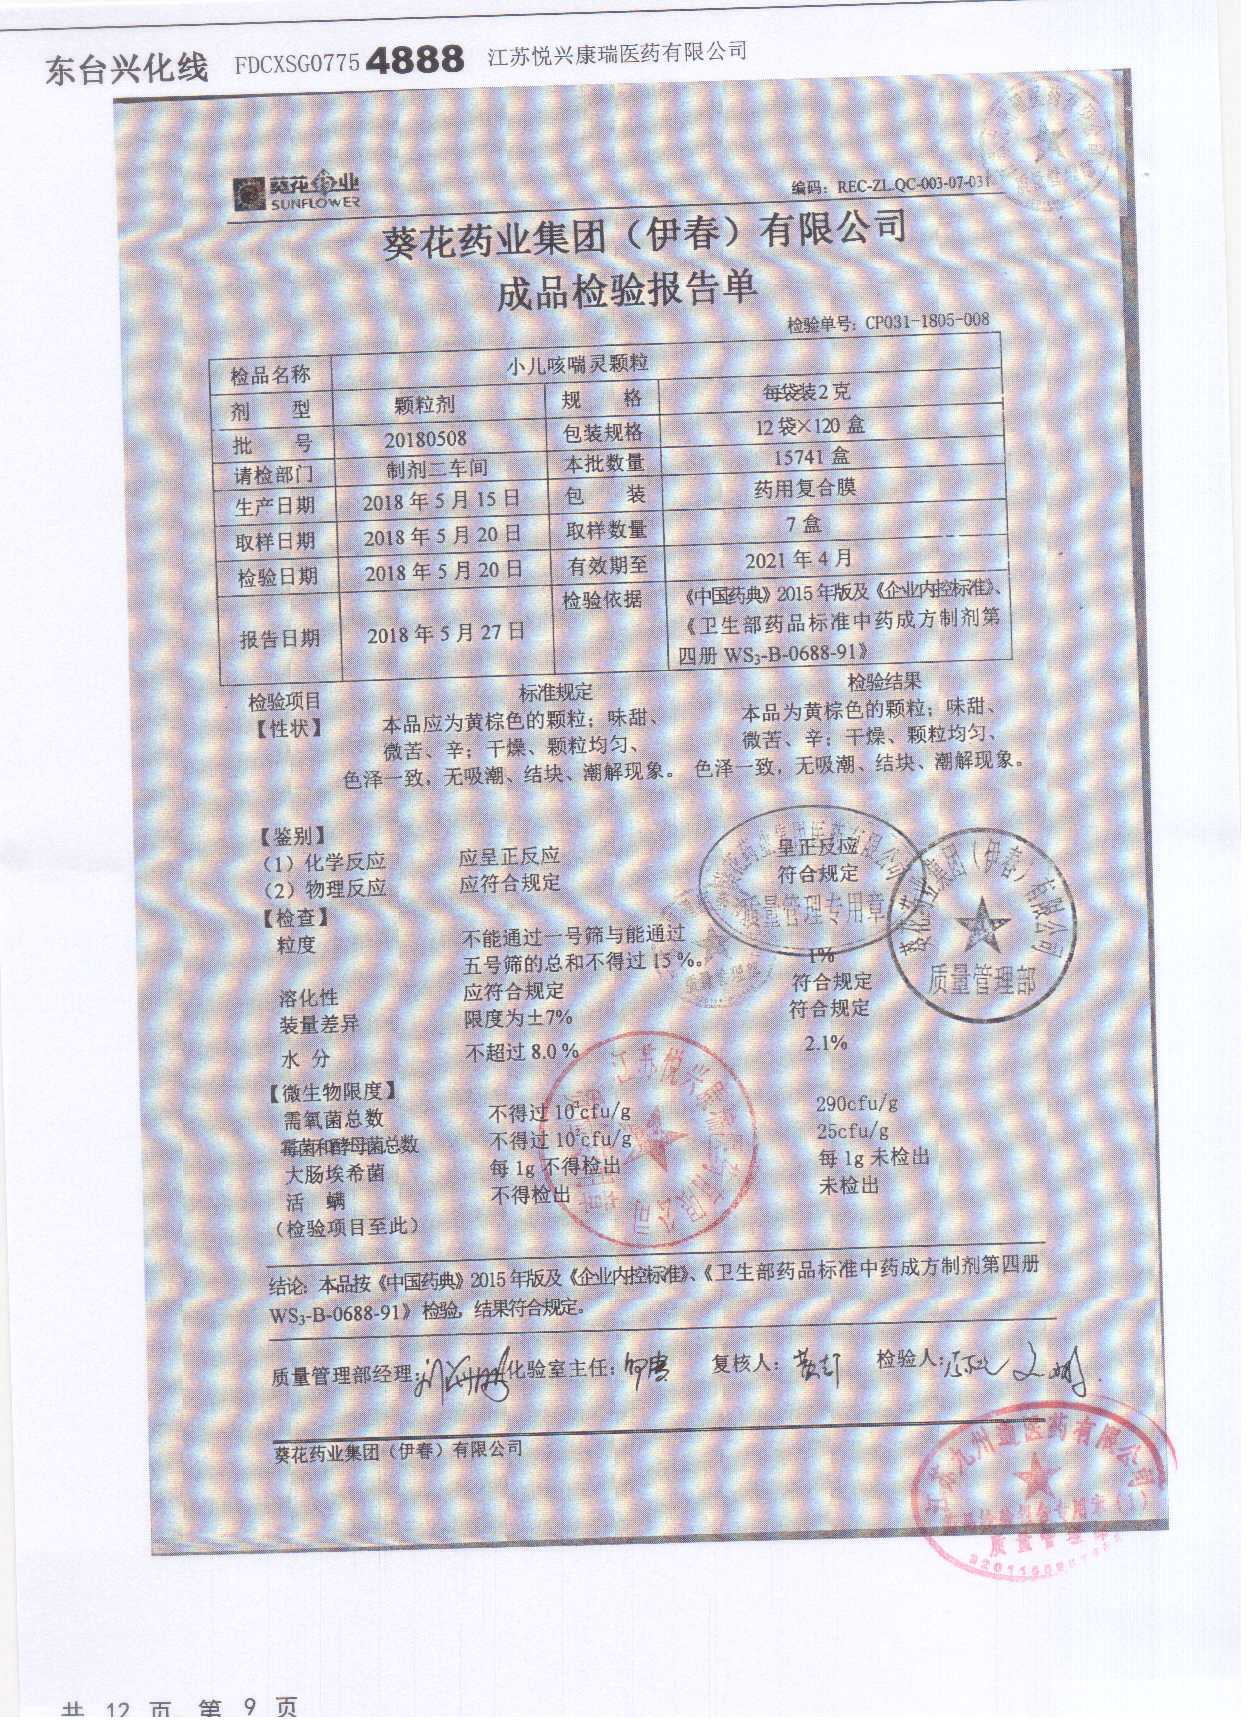 东台兴化线 FDCXSG0775 4888 江苏悦兴康瑞医药有限公司
葵花药业
SUNFLOWER
编码：REC-ZL.QC-003-07-031
葵花药业集团（伊春）有限公司
成品检验报告单
检验单号：CP031-1805-008
检品名称 小儿咳喘灵颗粒
剂 型 颗粒剂 规 格 每袋装2克
批 号 20180508 包装规格 12袋×120盒
请检部门 制剂二车间 本批数量 15741盒
生产日期 2018年5月15日 包 装 药用复合膜
取样日期 2018年5月20日 取样数量 7盒
检验日期 2018年5月20日 有效期至 2021年4月
报告日期 2018年5月27日 检验依据 《中国药典》2015年版及《企业内控标准》、
《卫生部药品标准中药成方制剂第
四册 WS3-B-0688-91》
检验项目 标准规定 检验结果
【性状】 本品应为黄棕色的颗粒；味甜、 本品为黄棕色的颗粒；味甜、
微苦、辛；干燥、颗粒均匀、 微苦、辛；干燥、颗粒均匀、
色泽一致，无吸潮、结块、潮解现象。 色泽一致，无吸潮、结块、潮解现象。
【鉴别】
（1）化学反应 应呈正反应 呈正反应
（2）物理反应 应符合规定 符合规定
【检查】
粒度 不能通过一号筛与能通过
五号筛的总和不得过15%。 1%
溶化性 应符合规定 符合规定
装量差异 限度为±7% 符合规定
水 分 不超过8.0% 2.1%
【微生物限度】
需氧菌总数 不得过10 cfu/g 290cfu/g
霉菌和酵母菌总数 不得过10 cfu/g 25cfu/g
大肠埃希菌 每1g不得检出 每1g未检出
活 螨 不得检出 未检出
（检验项目至此）
质量管理专用章
葵花药业集团（伊春）有限公司
质量管理部
结论：本品按《中国药典》2015年版及《企业内控标准》、《卫生部药品标准中药成方制剂第四册
WS3-B-0688-91》检验，结果符合规定。
质量管理部经理： 化验室主任： 复核人： 检验人：
葵花药业集团（伊春）有限公司
质量管理部
共 12 页 第 9 页